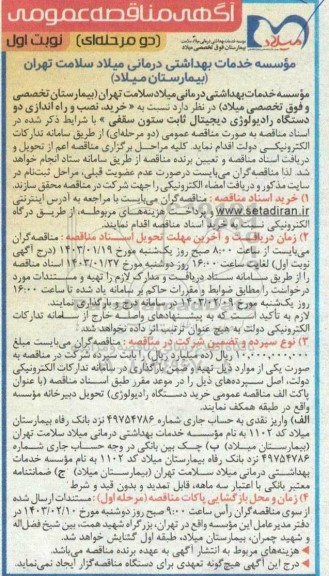 آگهی مناقصه عمومی
(دو مرحله‌ای) نوبت اول
میلاد
مؤسسه خدمات بهداشتی درمانی میلاد سلامت
بیمارستان فوق تخصصی میلاد
مؤسسه خدمات بهداشتی درمانی میلاد سلامت تهران
(بیمارستان میلاد)
مؤسسه خدمات بهداشتی درمانی میلاد سلامت تهران (بیمارستان تخصصی
و فوق تخصصی میلاد) در نظر دارد نسبت به « خرید، نصب و راه اندازی دو
دستگاه رادیولوژی دیجیتال ثابت ستون سقفی » با شرایط ذکر شده در
اسناد مناقصه به صورت مناقصه عمومی (دو مرحله‌ای) از طریق سامانه تدارکات
الکترونیکی دولت اقدام نماید. کلیه مراحل برگزاری مناقصه اعم از تحویل و
دریافت اسناد مناقصه و تعیین برنده مناقصه از طریق سامانه ستاد انجام خواهد
شد. لذا مناقصه گران می‌بایست درصورت عدم عضویت قبلی، مراحل ثبت‌نام در
سایت مذکور و دریافت امضاء الکترونیکی را جهت شرکت در مناقصه محقق سازند.
۱) خرید اسناد مناقصه : مناقصه گران می‌بایست با مراجعه به آدرس اینترنتی
www.setadiran.ir و پرداخت هزینه‌های مربوطه، از طریق درگاه
الکترونیکی نسبت به خرید اسناد مناقصه اقدام نمایند.
۲) زمان دریافت و آخرین مهلت تحویل اسناد مناقصه : مناقصه گران
می‌بایست از ساعت ۸:۰۰ صبح روز یک‌شنبه مورخ ۱۴۰۳/۰۱/۱۹ (درج آگهی
نوبت اول) لغایت ساعت ۱۶:۰۰ روز دوشنبه مورخ ۱۴۰۳/۰۱/۲۷ اسناد مناقصه
را از طریق سامانه ستاد دریافت و مدارک لازم را تهیه و مستندات مورد
درخواست را مطابق ضوابط و مقررات حاکم بر سامانه یاد شده تا ساعت ۱۶:۰۰
روز یک‌شنبه مورخ ۱۴۰۳/۰۲/۰۹ در سامانه درج و بارگذاری نمایند.
لازم به تأکید است که به پیشنهادهای واصله خارج از سامانه تدارکات
الکترونیکی دولت به هیچ عنوان ترتیب اثر داده نخواهد شد.
۳) نوع سپرده و تضمین شرکت در مناقصه : مناقصه‌گران می‌بایست مبلغ
۱۰,۰۰۰,۰۰۰,۰۰۰ ریال (ده میلیارد ریال) را بابت سپرده شرکت در مناقصه به
صورت یکی از موارد ذیل تهیه و ضمن بارگذاری در سامانه تدارکات الکترونیکی
دولت، اصل سپرده‌های ذیل را در موعد مقرر طبق اسناد مناقصه (با عنوان
پاکت الف مناقصه عمومی خرید دستگاه‌های رادیولوژی) تحویل دبیرخانه مؤسسه
واقع در طبقه همکف نمایند.
الف) واریز نقدی به حساب جاری شماره ۴۹۷۵۴۷۸۶ نزد بانک رفاه بیمارستان
میلاد کد ۱۱۰۲ به نام مؤسسه خدمات بهداشتی درمانی میلاد سلامت تهران
(بیمارستان میلاد) ب) چک بین بانکی در وجه حساب جاری شماره
۴۹۷۵۴۷۸۶ نزد بانک رفاه بیمارستان میلاد کد ۱۱۰۲ به نام مؤسسه خدمات
بهداشتی درمانی میلاد سلامت تهران (بیمارستان میلاد) ج) ضمانتنامه
معتبر بانکی با اعتبار سه ماهه، قابل تمدید و بدون قید و شرط
۴) زمان و محل بازگشایی پاکات مناقصه (مرحله اول) : مستندات ارسال شده
از سوی مناقصه‌گران رأس ساعت ۹:۰۰ صبح روز دوشنبه مورخ ۱۴۰۳/۰۲/۱۰ در
دفتر مدیرعامل این مؤسسه واقع در تهران، بزرگراه شهید همت، بین شیخ فضل‌اله
و شهید چمران، بیمارستان میلاد، طبقه اول گشایش خواهد شد.
◄ هزینه‌های مربوط به انتشار آگهی به عهده برنده مناقصه می‌باشد.
◄ درج این آگهی هیچ‌گونه تعهدی برای دستگاه مناقصه‌گزار ایجاد نمی‌نماید.